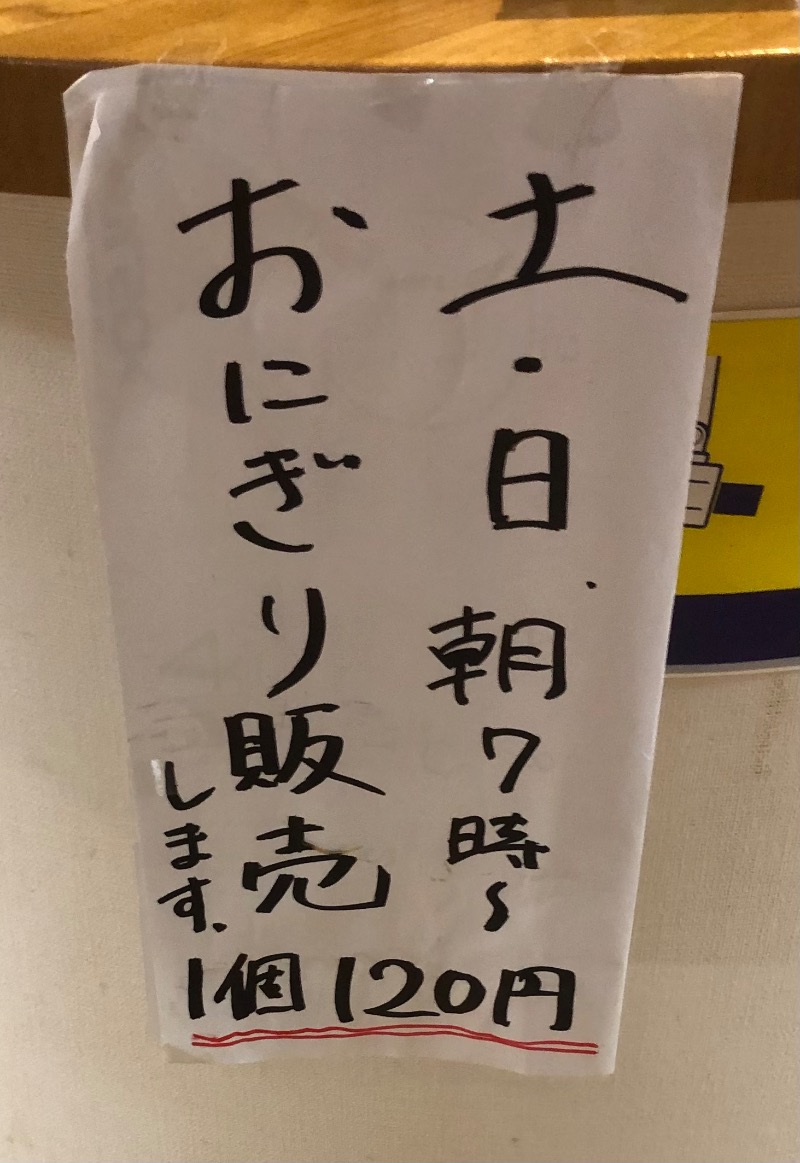 土・日 朝7時～
おにぎり販売
します.
1個120円